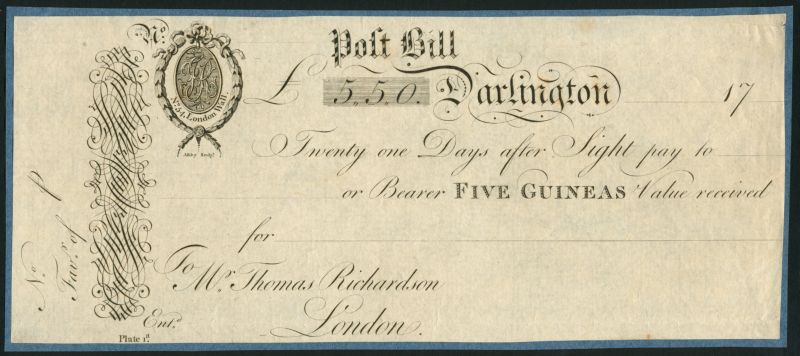 Poſt Bill
Nº.
£ 5,,5,,0. Darlington 17
Nº. 51, London Wall.
Ashby Sculpt.
Twenty one Days after Sight pay to
or Bearer FIVE GUINEAS Value received
for
To Mr. Thomas Richardson
London.
Entd.
Plate 1st.
No.
Favr. of
P